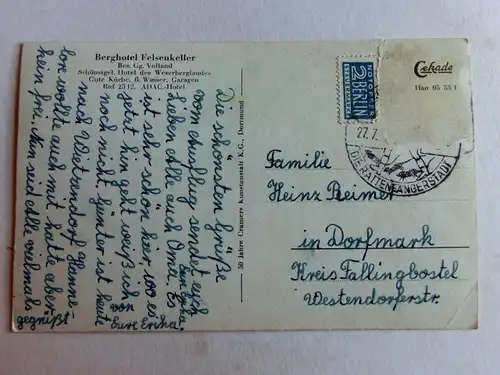 Berghotel Felsenkeller
Bes. Gg. Volland
Schönstgel. Hotel des Weserberglandes
Gute Küche, fl. Wasser, Garagen
Ruf 2312. ADAC-Hotel
Die schönsten Grüße
vom Ausflug sendet euch
haben Alle auch Oma. Es
ist sehr schön hier, wo es
jetzt hin geht weiß ich
noch nicht. Günter ist heute
nach Wietzendorf, Hanne-
lore wollte auch mit hatte aber
kein frei. Nun seid Alle vielmals
gegrüßt
von
Eure Erika.
50 Jahre Cramers Kunstanstalt K.G., Dortmund
NOTOPFER
2 BERLIN
STEUERMARKE
Cekade
Han 05 53/1
27.7.
DIE RATTENFÄNGERSTADT
Familie
Heinz Beimer
in Dorfmark
Kreis Fallingbostel
Westendorferstr.